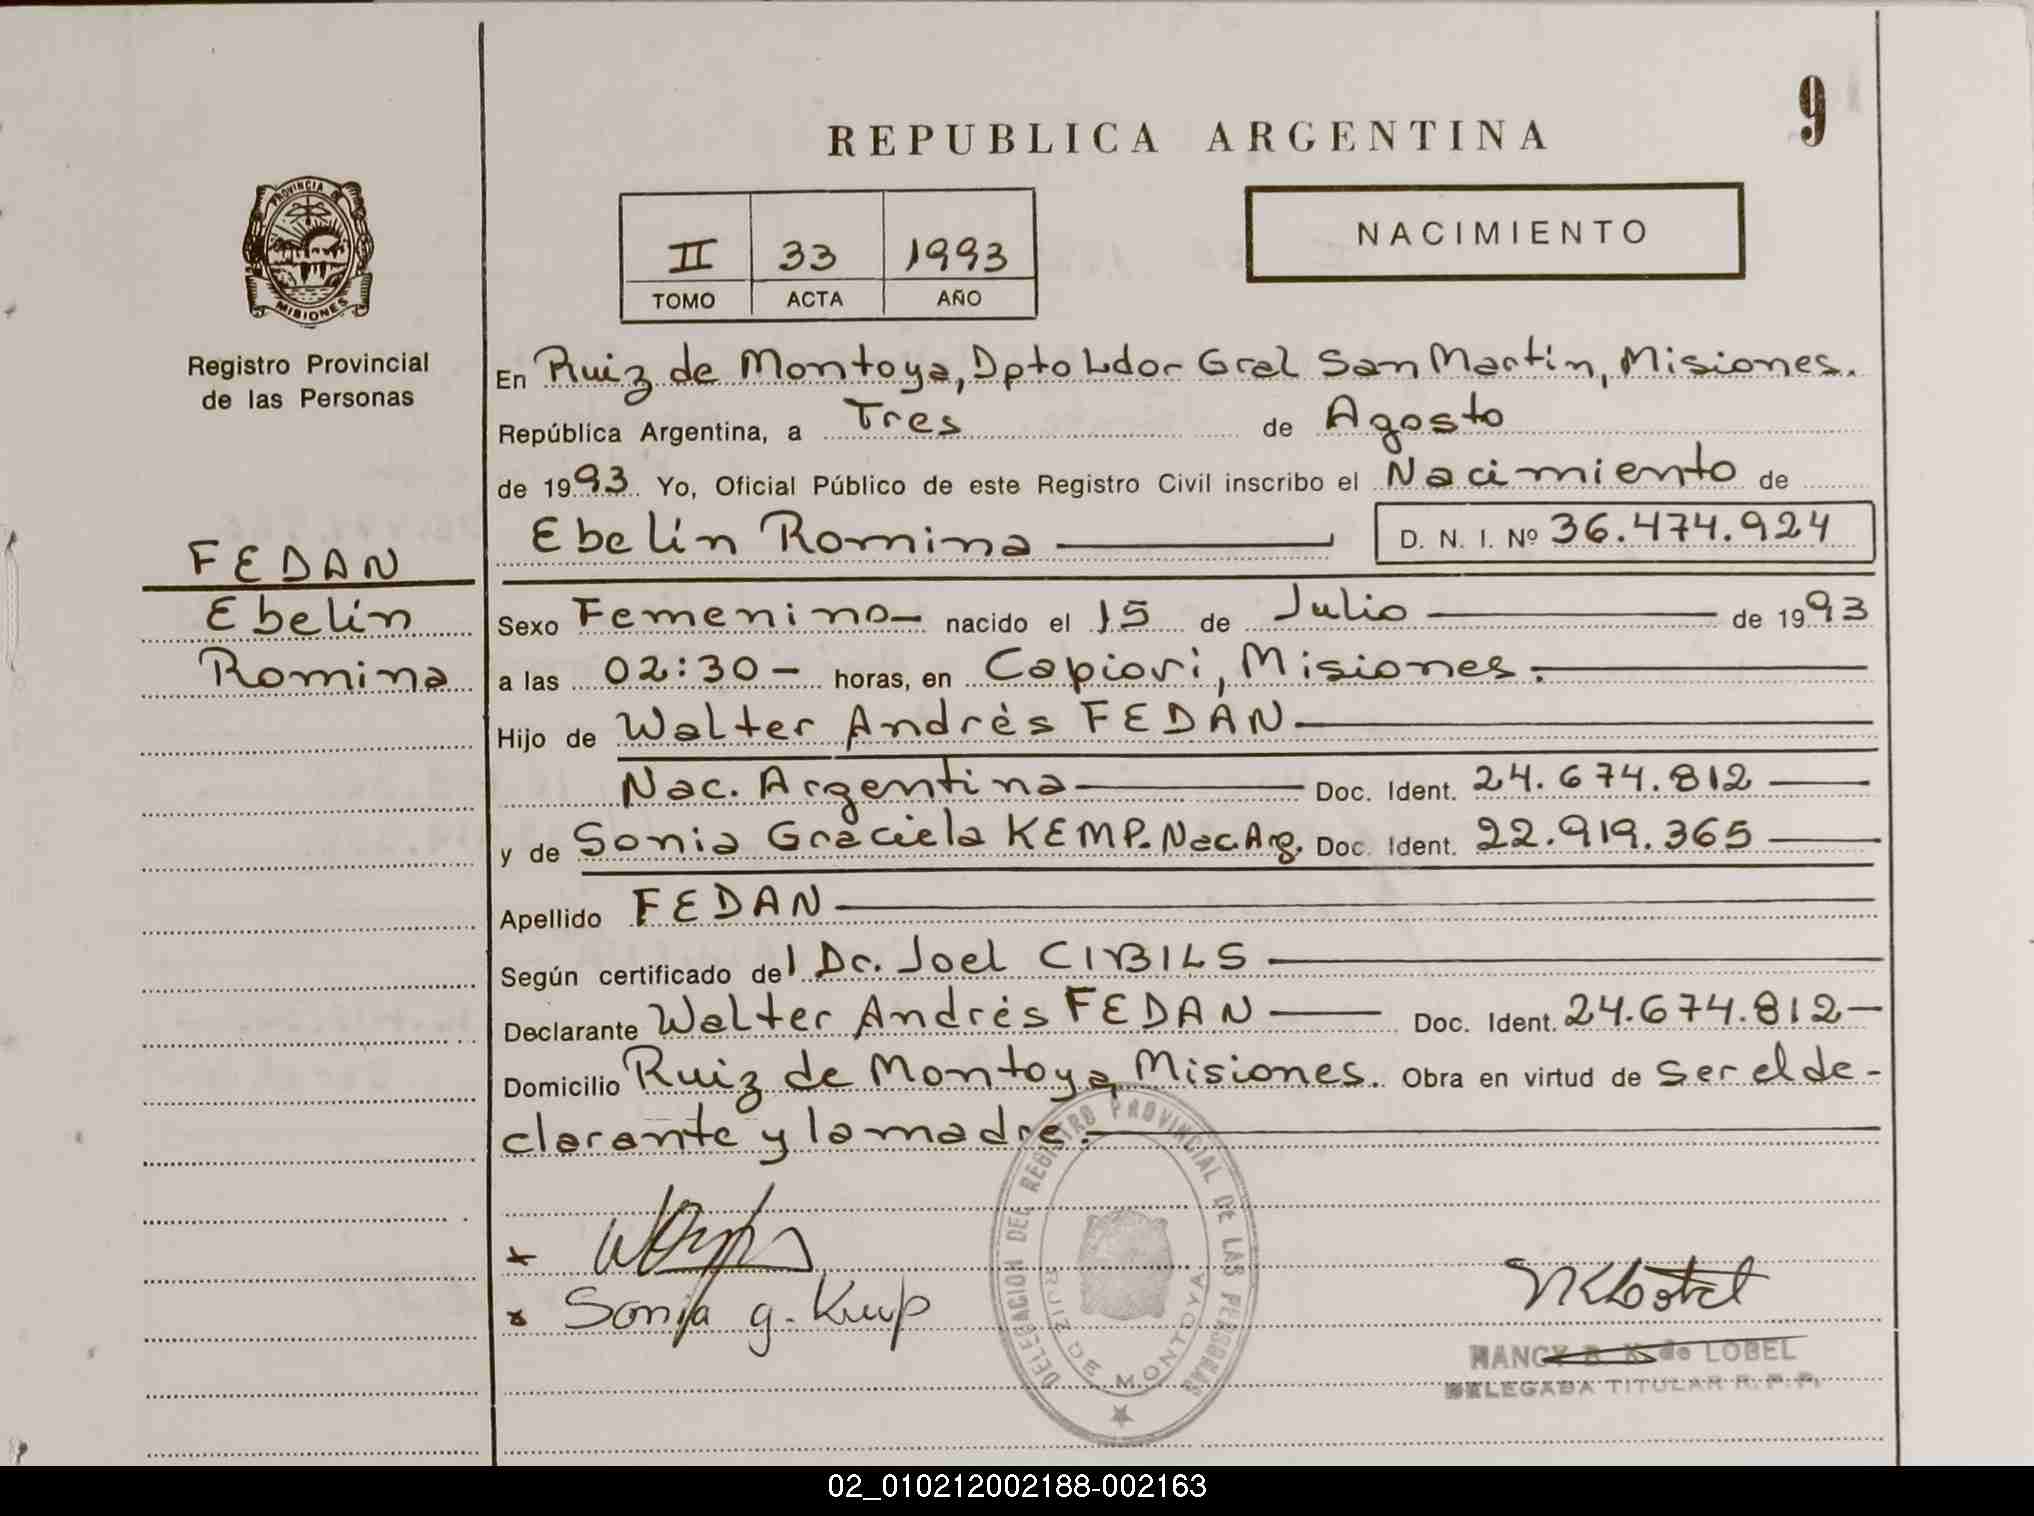 9
REPUBLICA ARGENTINA
PROVINCIA DE
MISIONES
Registro Provincial
de las Personas
NACIMIENTO
II 33 1993
TOMO ACTA AÑO
En Ruiz de Montoya, Dpto Ldor Gral San Martín, Misiones.
República Argentina, a Tres de Agosto
de 1993. Yo, Oficial Público de este Registro Civil inscribo el Nacimiento de
Ebelín Romina D. N. I. Nº 36.474.924
FEDAN
Ebelín
Romina
Sexo Femenino nacido el 15 de Julio de 1993
a las 02:30 horas, en Capioví, Misiones.
Hijo de Walter Andrés FEDAN
Nac. Argentina Doc. Ident. 24.674.812
y de Sonia Graciela KEMP. Nac. Arg. Doc. Ident. 22.919.365
Apellido FEDAN
Según certificado del Dr. Joel CIBILS
Declarante Walter Andrés FEDAN Doc. Ident. 24.674.812
Domicilio Ruiz de Montoya, Misiones. Obra en virtud de ser el de-
clarante y la madre.
DELEGACION DEL REGISTRO PROVINCIAL DE LAS PERSONAS
RUIZ DE MONTOYA
Sonia G. Kemp
NANCY B. K. de LOBEL
DELEGADA TITULAR R. P. P.
02_010212002188-002163